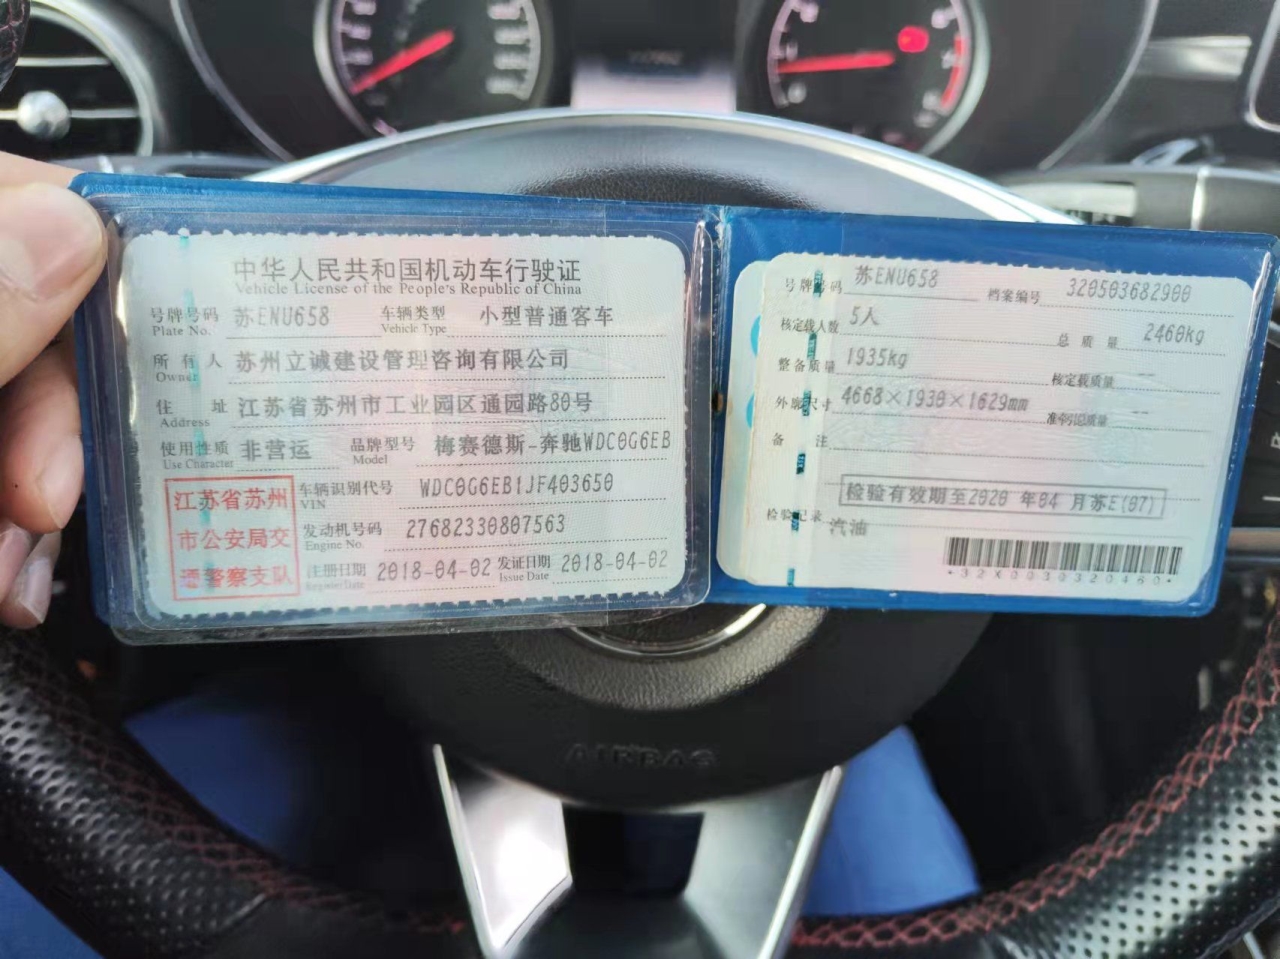 中华人民共和国机动车行驶证
Vehicle License of the People's Republic of China
号牌号码 苏ENU658 车辆类型 小型普通客车
Plate No. Vehicle Type
所有人 苏州立诚建设管理咨询有限公司
Owner
住址 江苏省苏州市工业园区通园路80号
Address
使用性质 非营运 品牌型号 梅赛德斯-奔驰WDC0G6EB
Use Character Model
江苏省苏州
市公安局交
通警察支队
车辆识别代号 WDC0G6EB1JF403650
VIN
发动机号码 27682330807563
Engine No.
注册日期 2018-04-02 发证日期 2018-04-02
Register Date Issue Date
号牌号码 苏ENU658 档案编号 320503682900
核定载人数 5人 总质量 2460kg
整备质量 1935kg 核定载质量 --
外廓尺寸 4668×1930×1629 准牵引总质量 --
备注
检验有效期至2020年04月苏E(07)
检验记录 汽油
*32X0030320460*
AIRBAG